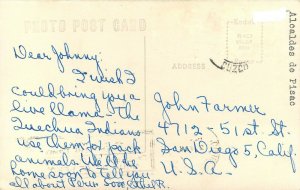 PHOTO POST CARD
Kodak
PLACE
STAMP
HERE
ADDRESS
CUZCO
Alcaldes de Pisac
Dear Johnny:
I wish I
could bring you a
live llama - the
Quechua Indians
use them for pack
animals. We'll be
home soon to tell you
all about Peru. Love,
John Farmer
4712 - 51st St.
San Diego 5, Calif.
U.S.A.